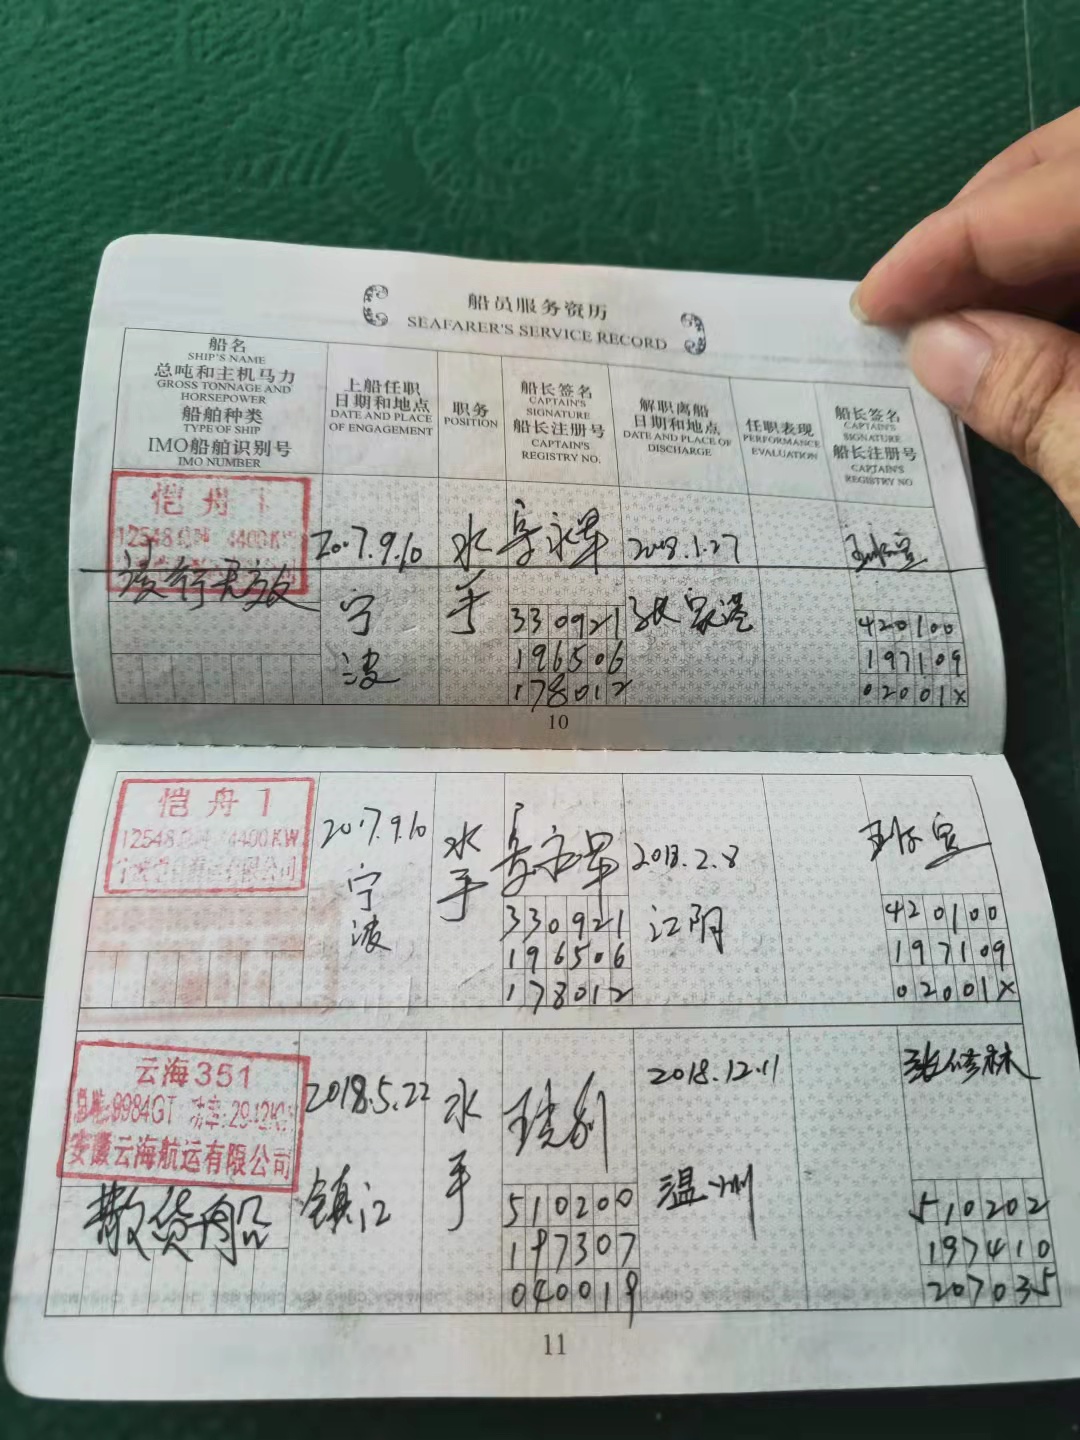 船员服务资历
SEAFARER'S SERVICE RECORD
船名
SHIP'S NAME
总吨和主机马力
GROSS TONNAGE AND
HORSEPOWER
船舶种类
TYPE OF SHIP
IMO船舶识别号
IMO NUMBER
上船任职
日期和地点
DATE AND PLACE
OF ENGAGEMENT
职务
POSITION
船长签名
CAPTAIN'S
SIGNATURE
船长注册号
CAPTAIN'S
REGISTRY NO.
解职离船
日期和地点
DATE AND PLACE OF
DISCHARGE
任职表现
PERFORMANCE
EVALUATION
船长签名
CAPTAIN'S
SIGNATURE
船长注册号
CAPTAIN'S
REGISTRY NO
恺舟1
12548总吨 4400KW
该行无效
2017.9.10
宁
波
水
手
330921
196506
178012
2018.1.27
张家港
420100
197109
02001X
10
恺舟1
12548总吨 4400KW
2017.9.10
宁
波
水
手
330921
196506
178012
2018.2.8
江阴
420100
197109
02001X
云海351
总吨:9984GT 功率:2942KW
安徽云海航运有限公司
散货船
2018.5.22
镇江
水
手
510200
197307
040019
2018.12.11
温州
张修林
510202
197410
207035
11